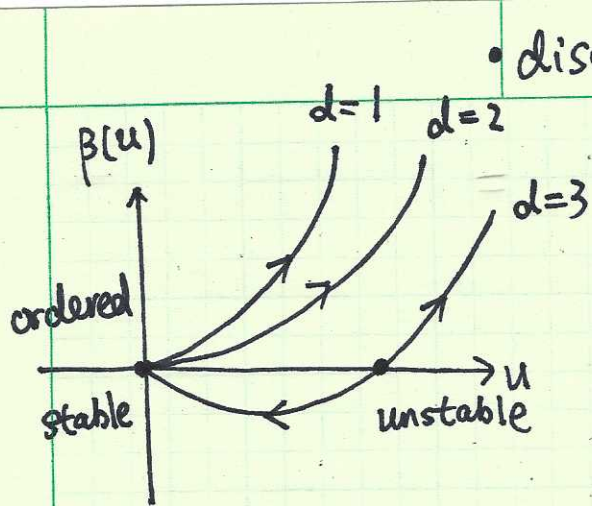 • dis
d=1
d=2
β(u)
d=3
ordered
u
stable
unstable